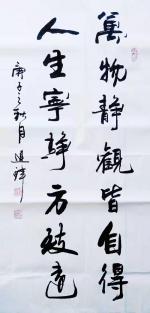 萬物靜觀皆自得
人生寧靜方致遠
庚子之秋月